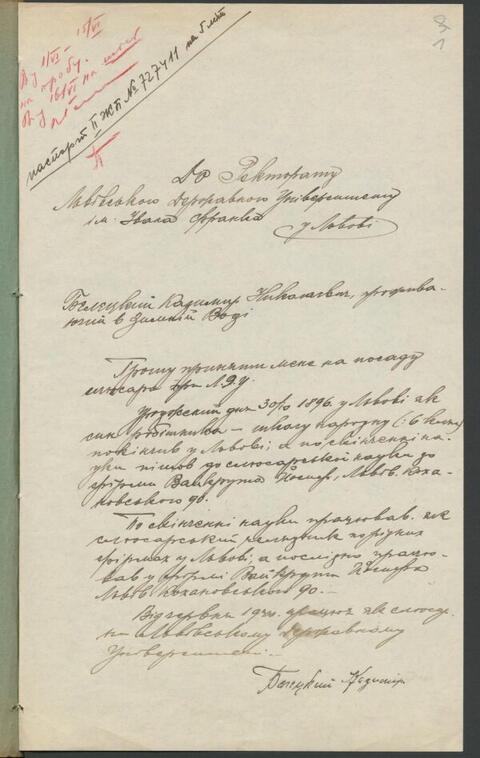 3
1
В у 1/VI - 15/VI
на пробу.
В у 16/VI на
паспорт ІІ ЖП № 727411 на 5 літ
До Ректорату
Львівського Державного Університету
ім. Івана Франка
у Львові
Белецкий Казимир Николаевич, прожива-
ючий в Зимній Воді
Прошу приняти мене на посаду
слюсара при Л.Д.У.
Уроджений дня 1896. у Львові як
син робітника — школу народну (: 6 клас)
покінчив у Львові, а по скінченні на-
уки пішов до слюсарської науки до
фірми Йосифа, Львів. Коха-
новського 90.
По скінченні науки працював як
слюсарський челядник по різних
фірмах у Львові, а послідно працю-
вав у фірмі Йосифа
Львів Кохановського 90.—
Від червня 1940. працюю як слюсар
на Львівському Державному
Університеті.—
Белецкий Казимир